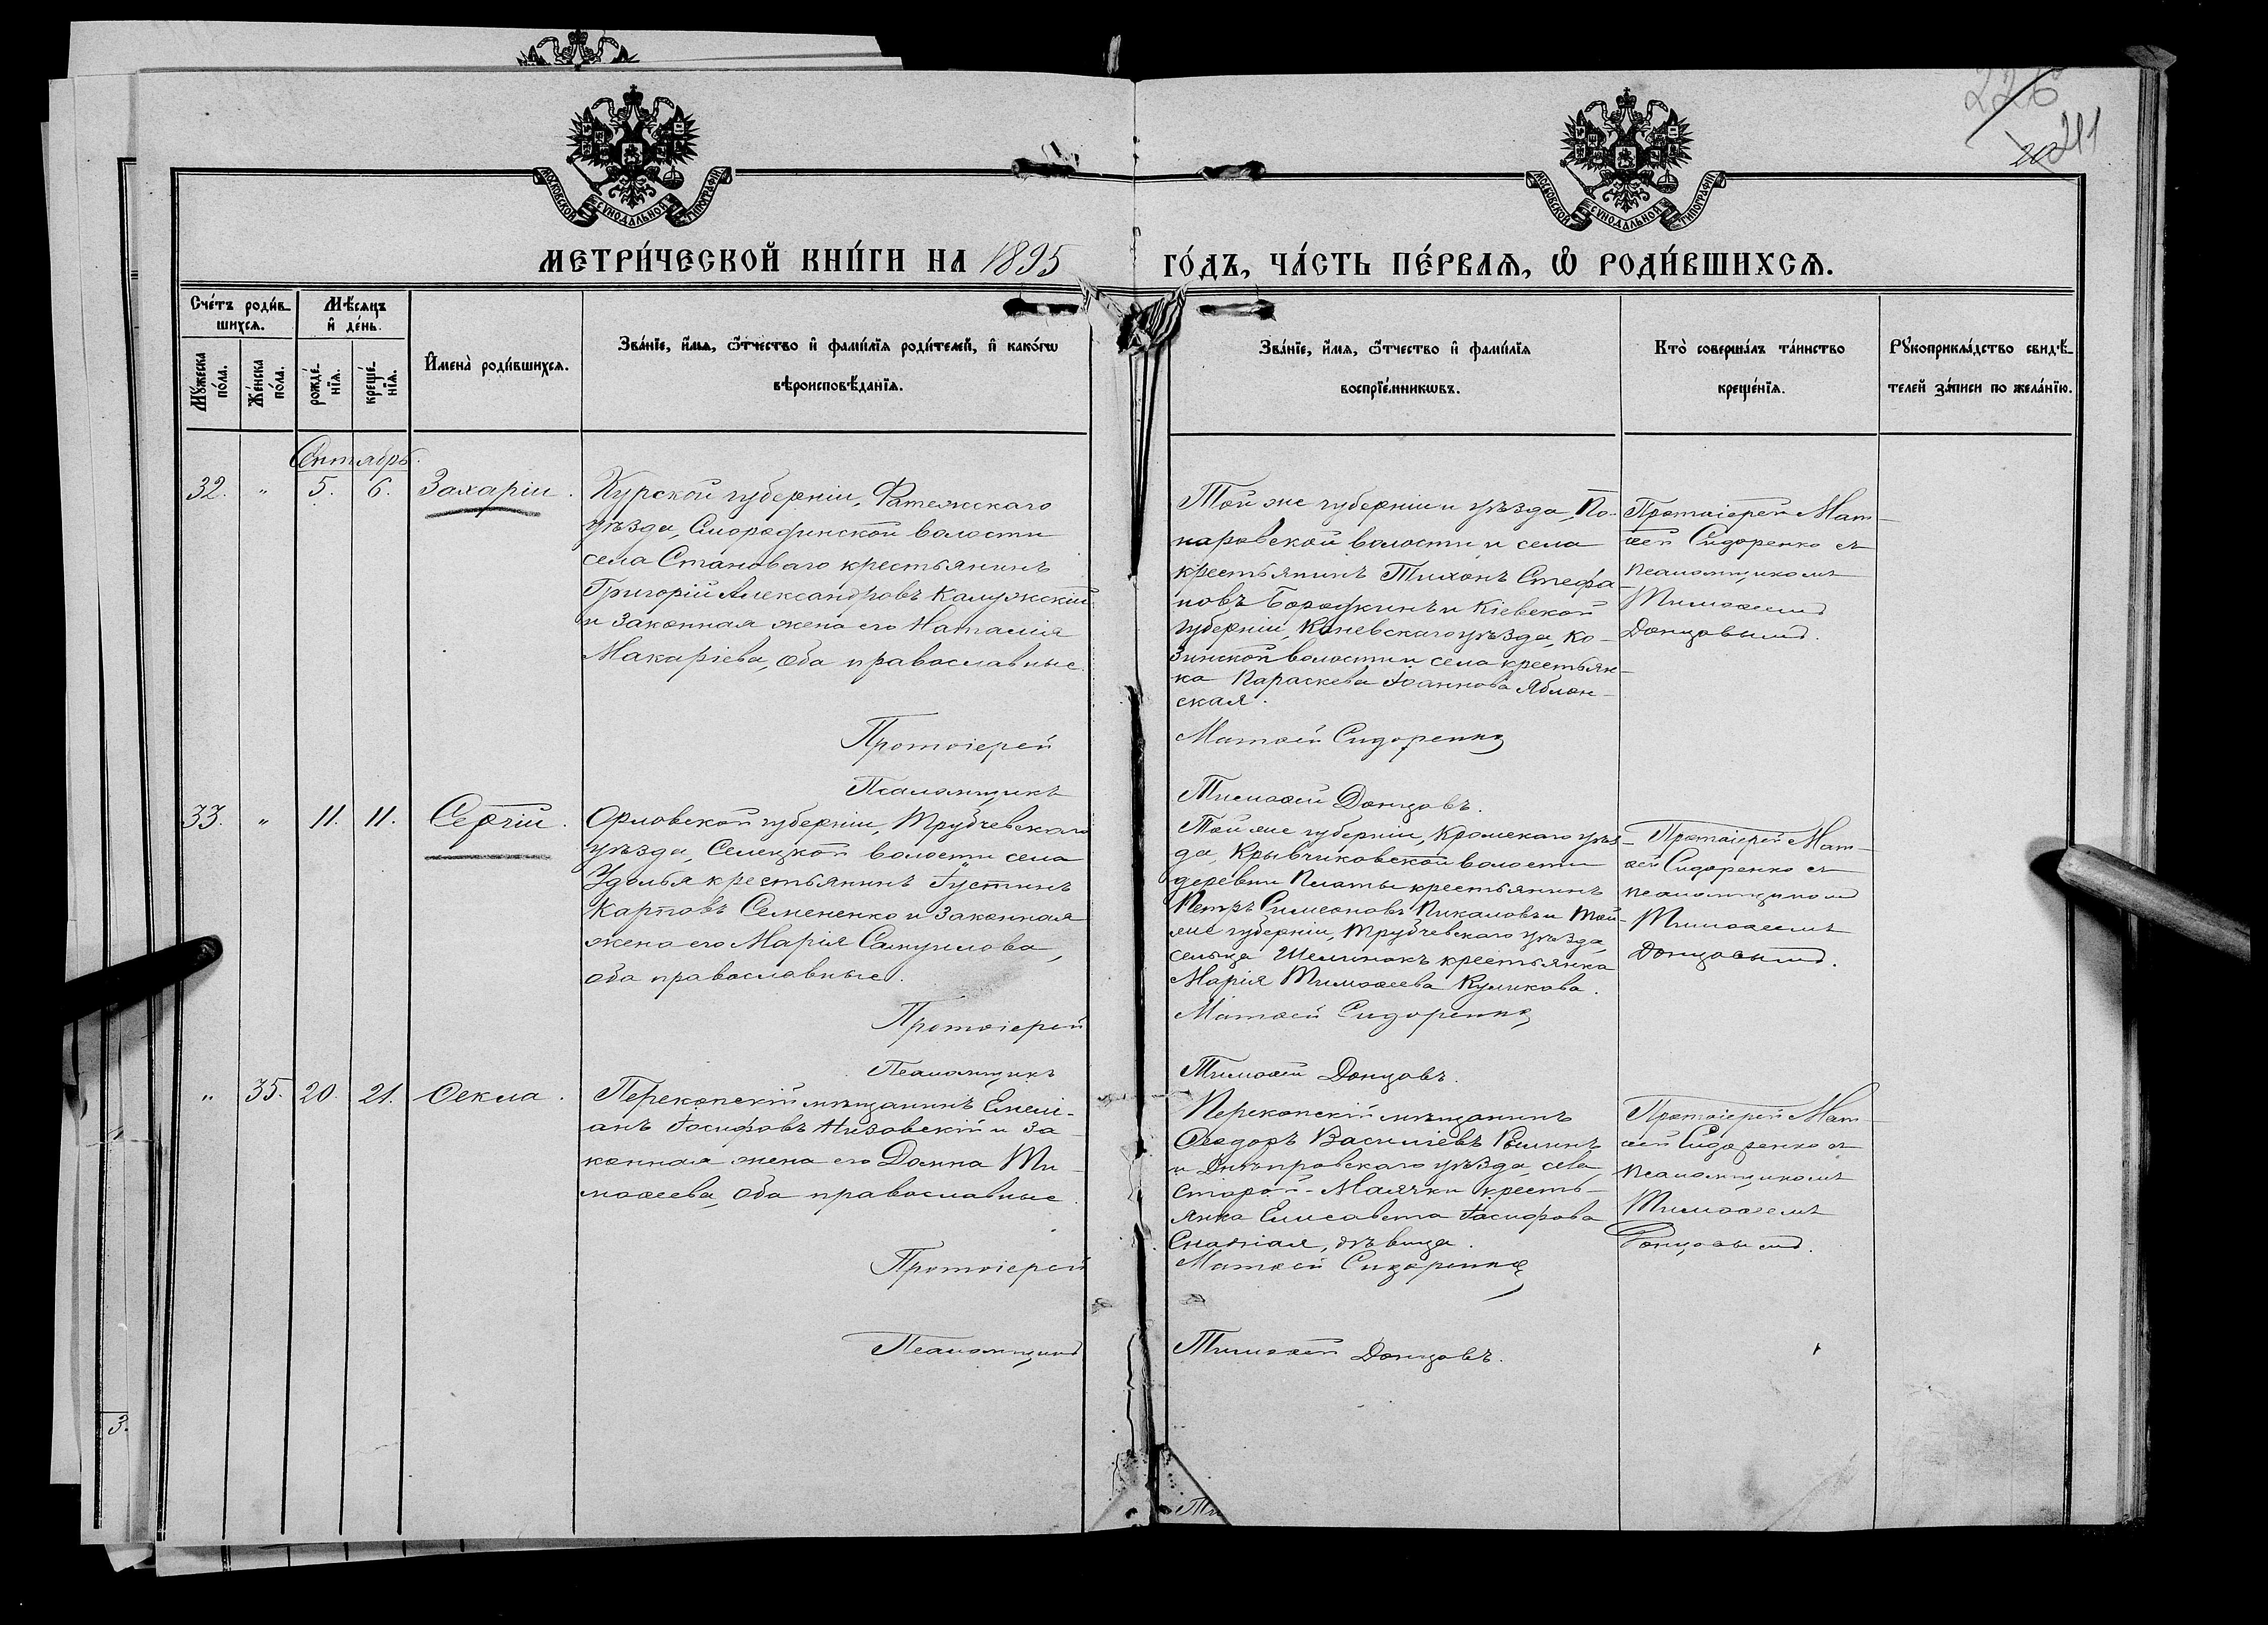 226
20
211
МОСКОВСКОЙ СѴНОДАЛЬНОЙ ТИПОГРАФІИ
МОСКОВСКОЙ СѴНОДАЛЬНОЙ ТИПОГРАФІИ
МЕТРИ́ЧЕСКОЙ КНИ́ГИ НА 1895 ГО́ДЪ, ЧА́СТЬ ПЕ́РВАѦ, Ѡ РОДИ́ВШИХСѦ.
Сче́тъ роди́в-
шихсѧ.
Мꙋ́жеска
по́ла.
Же́нска
по́ла.
Мѣ́сяцъ
и҆ де́нь.
рожде́-
нїѧ.
креще́-
нїѧ.
И҆мена̀ роди́вшихсѧ.
Зва́нїе, и҆́мѧ, ѻ҆́тчество и҆ фамі́лїѧ роди́телей, и҆ како́гѡ
вѣроисповѣ́данїѧ.
Зва́нїе, и҆́мѧ, ѻ҆́тчество и҆ фамі́лїѧ
воспрїе́мникѡвъ.
Кто̀ соверша́лъ та́инство
креще́нїѧ.
Рꙋкоприкла́дство свидѣ́-
телей за́писи по жела́нїю.
Сентябрь.
32. „ 5. 6. Захарій.
Курской губерніи, Фатежскаго
уѣзда, Смородинской волости
села Становаго крестьянинъ
Григорій Александровъ Калужскій
и законная жена его Наталія
Макаріева, оба православные.
Той же губерніи и уѣзда, По-
наровской волости и села
крестьянинъ Тихонъ Стефа-
новъ и Кіевской
губерніи, Каневскаго уѣзда, Ко-
зинской волости и села крестьян-
ка Параскева Іоаннова Яблон-
ская.
Протоіерей Мат-
ѳей Сидоренко съ
псаломщикомъ
Тимоѳеемъ
Донцовымъ.
Протоіерей Матѳей Сидоренко
Псаломщикъ Тимоѳей Донцовъ.
33. „ 11. 11. Сергій.
Орловской губерніи, Трубчевскаго
уѣзда, Селецкой волости села
Удолья крестьянинъ Іустинъ
Карповъ Семененко и законная
жена его Марія Самуилова,
оба православные.
Той же губерніи, Кромскаго уѣз-
да, Крывчиковской волости
деревни Платы крестьянинъ
Петръ Симеоновъ Пикаловъ и той-
же губерніи, Трубчевскаго уѣзда,
сельца крестьянка
Марія Тимоѳеева Куликова.
Протоіерей Мат-
ѳей Сидоренко съ
псаломщикомъ
Тимоѳеемъ
Донцовымъ.
Протоіерей Матѳей Сидоренко
Псаломщикъ Тимоѳей Донцовъ.
„ 35. 20. 21. Ѳекла.
Перекопскій мѣщанинъ Емелі-
анъ Іосифовъ Низовскій и за-
конная жена его Домна Ти-
моѳеева, оба православные.
Перекопскій мѣщанинъ
Ѳеодоръ Василіевъ
и Днѣпровскаго уѣзда, села
Старой-Маячки кресть-
янка Елисавета Іосифова
дѣвица.
Протоіерей Мат-
ѳей Сидоренко съ
псаломщикомъ
Тимоѳеемъ
Донцовымъ.
Протоіерей Матѳей Сидоренко
Псаломщикъ Тимоѳей Донцовъ.
3.
Ти